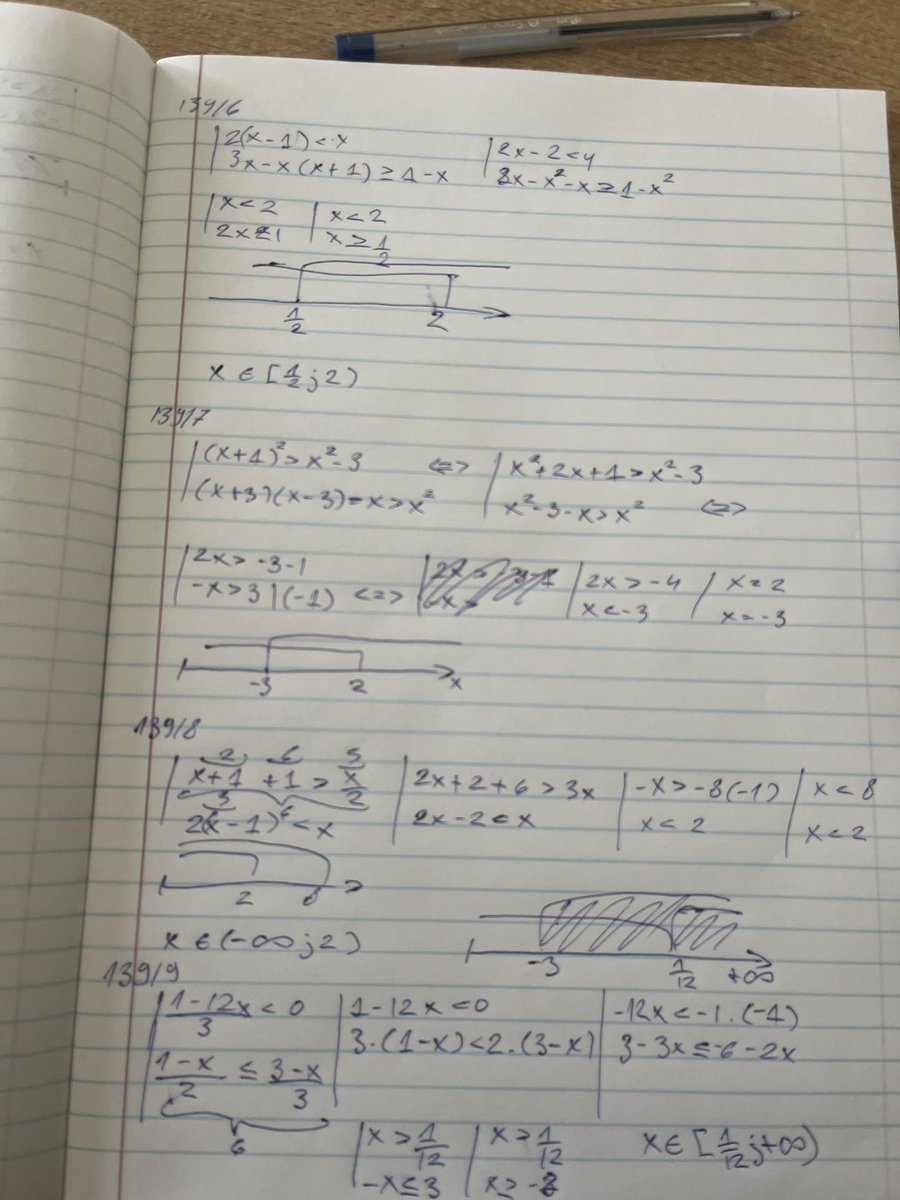 139/6
2(x-1)<x
3x-x(x+1)≥1-x
2x-2<4
3x-x²-x≥1-x²
x<2
2x≥1
x<2
x≥1/2
1/2 2
x∈[1/2;2)
139/7
(x+1)²>x²-3 <=> x²+2x+1>x²-3
(x+3)(x-3)=x>x² x²-3-x>x² <=>
2x>-3-1
-x>3|(-1) <=>
2x>-4
x<-3
x=2
x=-3
-3 2 x
139/8
2 6 3
x+1/3 +1 > x/2
6
2(x-1)<x
2x+2+6>3x
2x-2<x
-x>-8(-1)
x<2
x<8
x<2
2 8
x∈(-∞;2)
-3 1/12 +∞
139/9
1-12x/3<0
1-x/2≤3-x/3
6
1-12x<0
3.(1-x)<2.(3-x)
-12x<-1.(-1)
3-3x≤-6-2x
x>1/12
-x≤3
x>1/12
x≥-3
x∈[1/12;+∞)